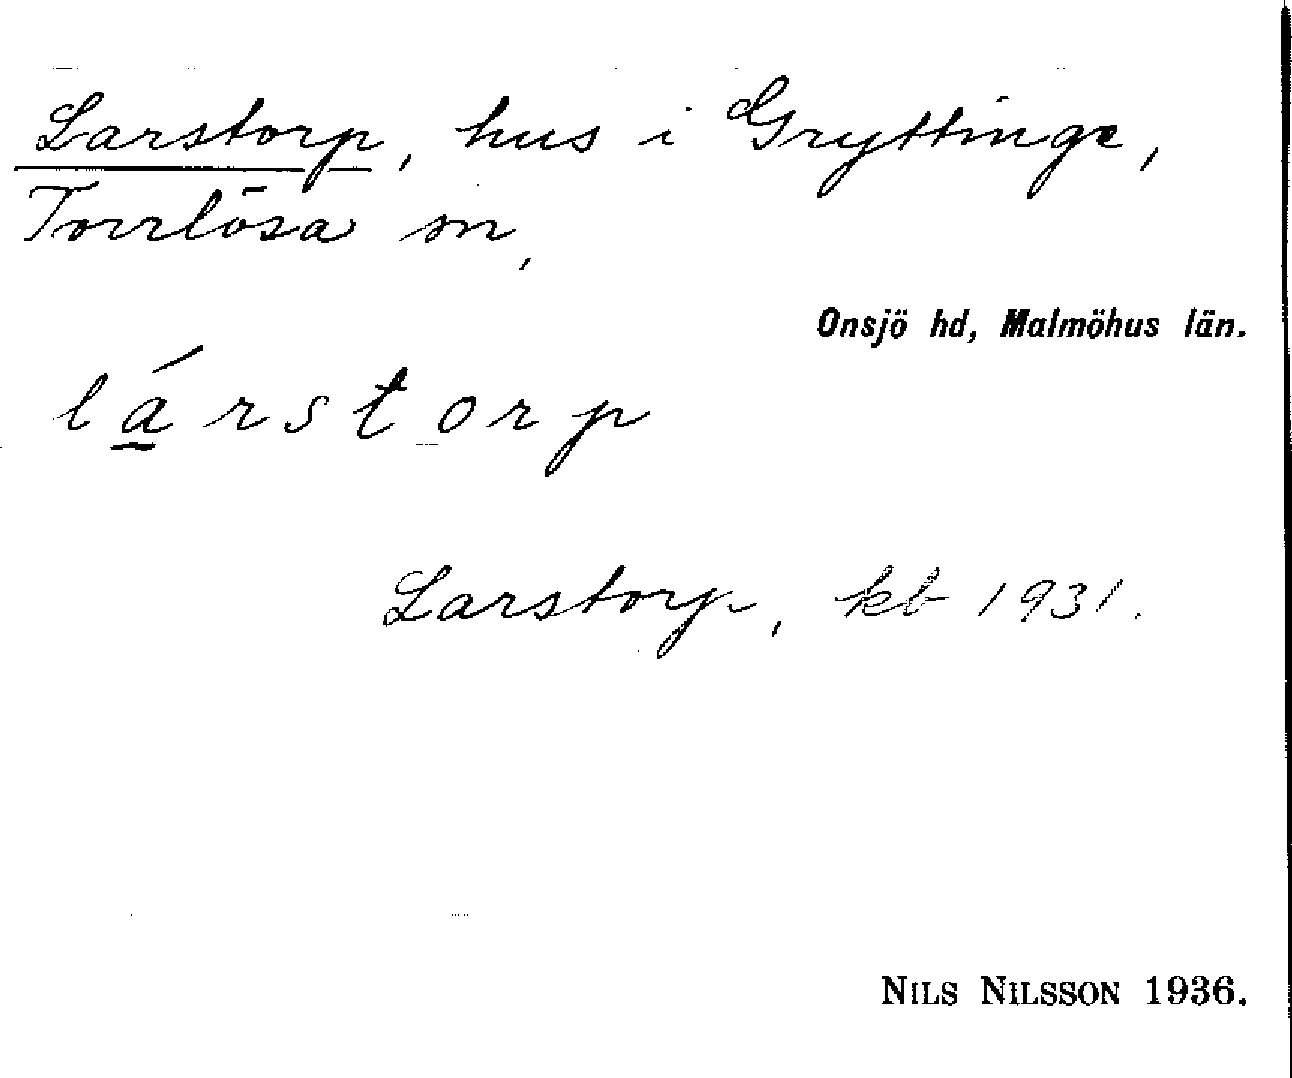 Larstorp, hus i Gryttinge,
Torrlösa sn,
Onsjö hd, Malmöhus län.
lá̱rstorp
Larstorp, kb 1931.
NILS NILSSON 1936.